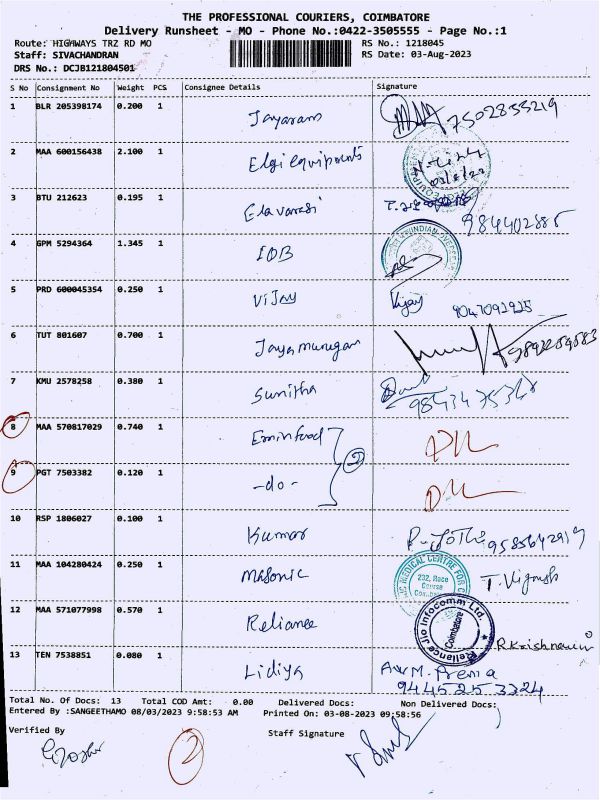 THE PROFESSIONAL COURIERS, COIMBATORE
Delivery Runsheet - MO - Phone No.:0422-3505555 - Page No.:1
Route: HIGHWAYS TRZ RD MO RS No.: 1218045
Staff: SIVACHANDRAN RS Date: 03-Aug-2023
DRS No.: DCJB121804501
S No Consignment No Weight PCS Consignee Details Signature
1 BLR 205398174 0.200 1 Jayaram 7502855219
2 MAA 600156438 2.100 1 Elgi equipments
3 BTU 212623 0.195 1 Elavarasi
984402885
4 GPM 5294364 1.345 1 IOB
5 PRD 600045354 0.250 1 Vijay Vijay 9047092925
6 TUT 801607 0.700 1 Jaya murugan
7 KMU 2578258 0.380 1 Sunitha
8 MAA 570817029 0.740 1 Emin food
2
9 PGT 7503382 0.120 1 -do-
10 RSP 1806027 0.100 1 Kumar P. Jothi 9585642919
11 MAA 104280424 0.250 1 Masonic MEDICAL CENTRE FOR 232, Race Course
12 MAA 571077998 0.570 1 Reliance Reliance Jio Infocomm Ltd. Coimbatore
13 TEN 7538851 0.080 1 Lidiya M. Prema
9445253324
Total No. Of Docs: 13 Total COD Amt: 0.00 Delivered Docs: Non Delivered Docs:
Entered By :SANGEETHAMO 08/03/2023 9:58:53 AM Printed On: 03-08-2023 09:58:56
Verified By Staff Signature
2